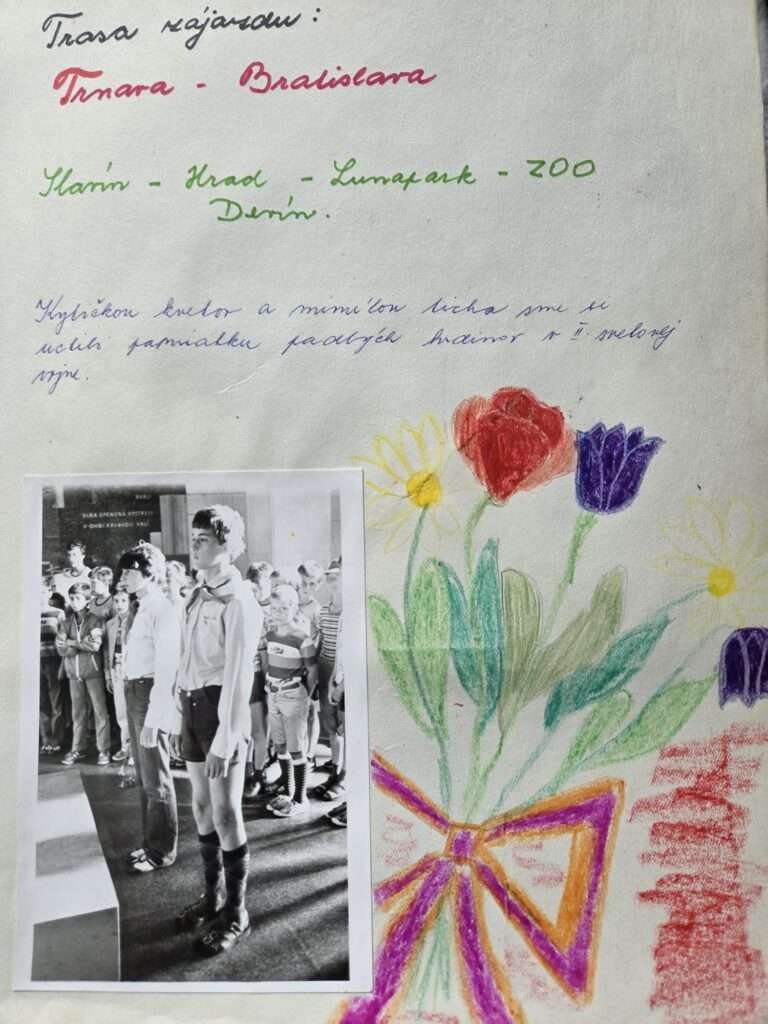 Trasa zájazdu:
Trnava - Bratislava
Slavín - Hrad - Lunapark - ZOO
Devín.
Kytičkou kvetov a minútou ticha sme si
uctili pamiatku padlých hrdinov v II. svetovej
vojne.
V OHNI KRVAVOM VALÍ